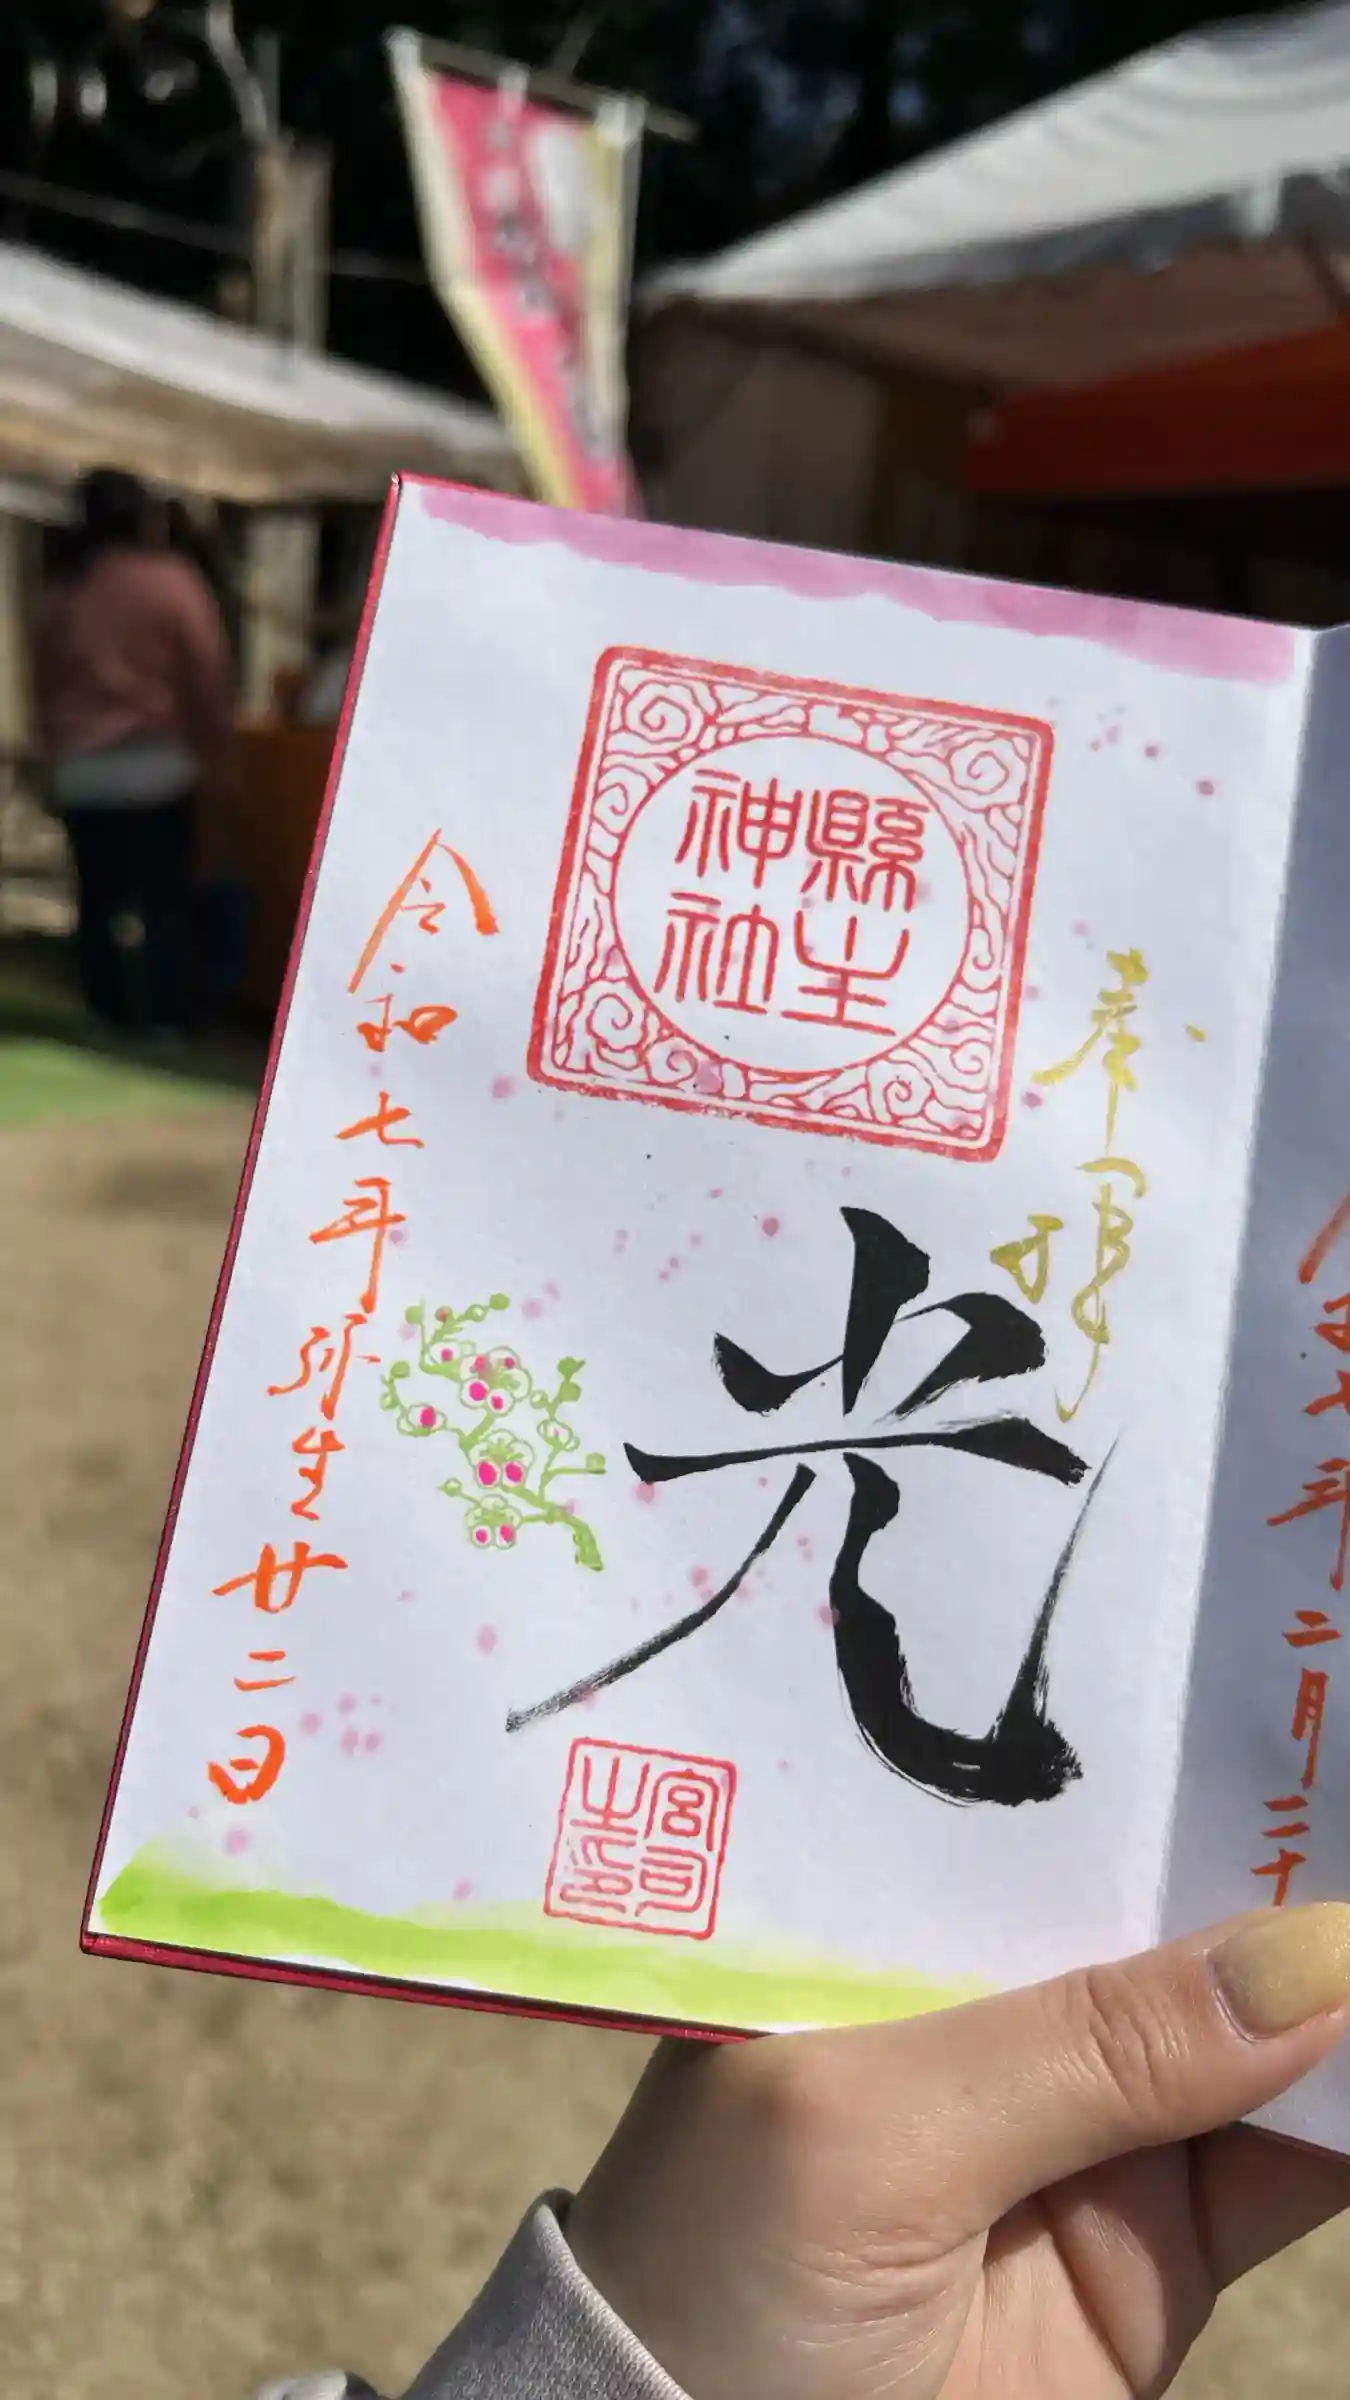 奉拝
縣主
神社
光
宮司
之印
令和七年弥生廿二日
二月二十